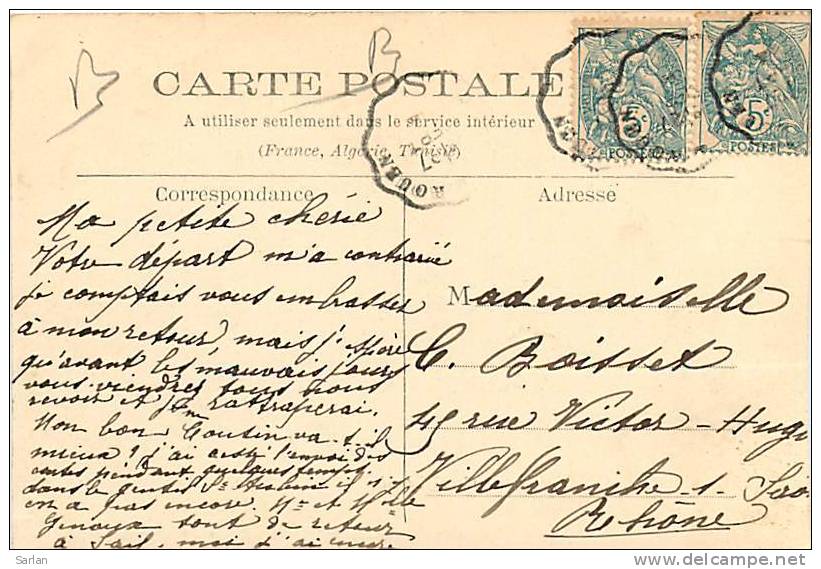 CARTE POSTALE
A utiliser seulement dans le service intérieur
(France, Algérie, Tunisie)
Correspondance
Adresse
Ma petite chérie
Votre départ m'a contrarié
je comptais vous embrasser
à mon retour, mais j'
qu'avant les mauvais jours
vous viendrez tous nous
revoir et je me rattraperai.
Mon bon Cousin va-t-il
mieux? j'ai cessé l'envoi des
cartes pendant quelques temps.
dans le
en a pas encore. Mr et Mlle
sont de retour
à Sail, moi j'ai encore
Mademoiselle
C. Boisset
45 rue Victor-Hugo
Villefranche s. Saône
Rhône
ROUEN
07
5c
POSTES
5c
POSTES
Sarlan
www.delcampe.net